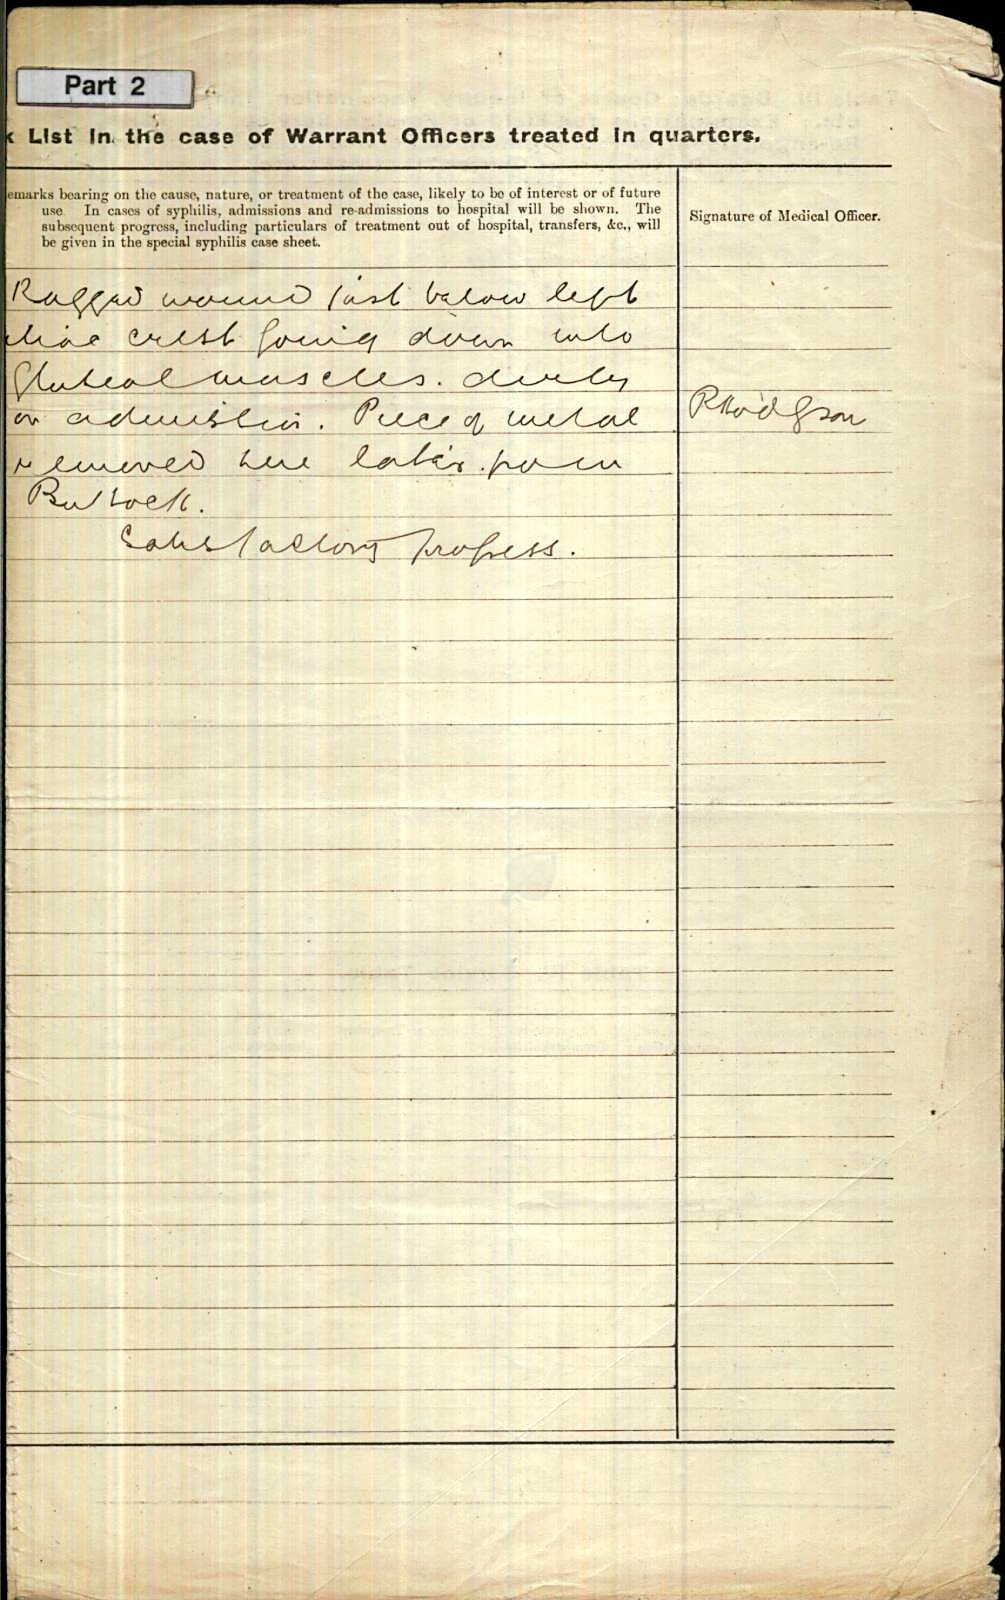 Part 2
k List in the case of Warrant Officers treated in quarters.
emarks bearing on the cause, nature, or treatment of the case, likely to be of interest or of future
use. In cases of syphilis, admissions and re-admissions to hospital will be shown. The
subsequent progress, including particulars of treatment out of hospital, transfers, &c., will
be given in the special syphilis case sheet.
Signature of Medical Officer.
Ragged wound just below left
iliac crest going down into
Gluteal muscles.
on admission. Piece of metal
RHodgson
removed here later from
Buttock.
Satisfactory progress.